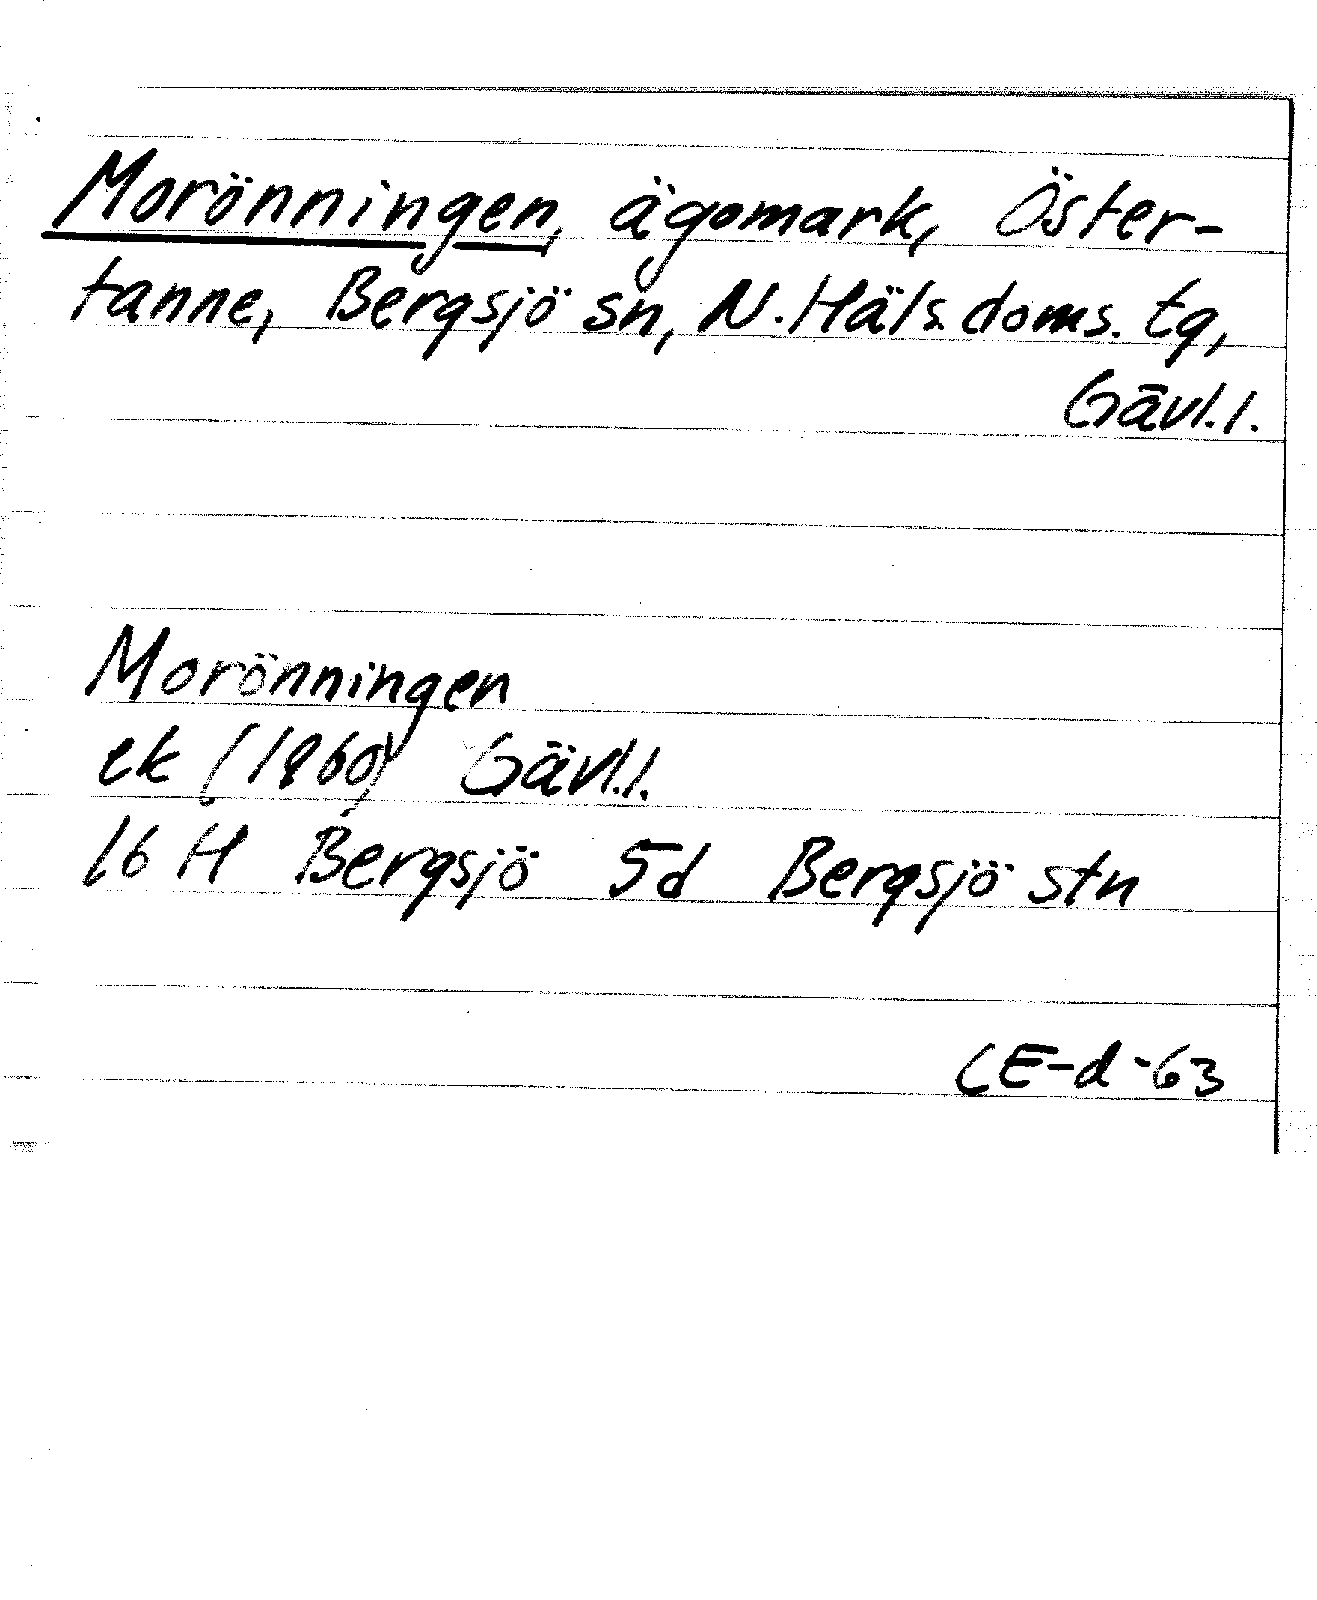 Morönningen, ägomark, Öster-
tanne, Bergsjö sn, N. Häls. doms. tg,
Gävl. l.
Morönningen
ek (1960) Gävl. l.
16 H Bergsjö 5d Bergsjö stn
CE-d-63